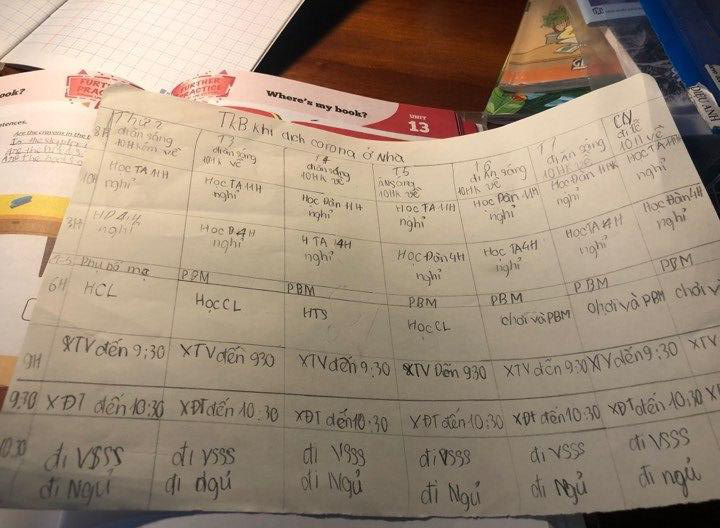 Where's my book?
UNIT
13
FURTHER
PRACTICE
FURTHER
PRACTICE
book?
sentences.
TKB Khi dịch corona ở nhà
8H
Thứ 2
đi ăn sáng
10H kém về
T3
đi ăn sáng
10H về
T4
đi ăn sáng
10H về
T5
Ăn sáng
10H về
T6
đi ăn sáng
10H về
T7
đi Ăn sáng
10H về
CN
đi lễ
10H về
10H
Học TA 11H
nghỉ
Học TA 11H
nghỉ
Học Đàn 11H
nghỉ
Học TA 11H
nghỉ
Học Đàn 11H
nghỉ
Học Đàn 11H
nghỉ
Học TA 11H
nghỉ
3H
HĐ 4H
nghỉ
Học Đ 4H
nghỉ
H TA 4H
nghỉ
Học Đàn 4H
nghỉ
Học TA 4H
nghỉ
Học TA 4H
nghỉ
Học Đàn 4H
nghỉ
Phụ bố mẹ
PBM
PBM
PBM
PBM
PBM
PBM
6H
HCL
Học CL
HTS
Học CL
chơi và PBM
chơi và PBM
chơi và
9H
XTV đến 9:30
XTV đến 930
XTV đến 9:30
XTV Đến 930
XTV đến 9:30
XTV đến 9:30
XTV
9:30
XĐT đến 10:30
XĐT đến 10:30
XĐT đến 10:30
XĐT đến 10:30
XĐT đến 10:30
XĐT đến 10:30
10:30
đi VSSS
đi Ngủ
đi VSSS
đi ngủ
đi VSSS
đi Ngủ
đi VSSS
đi Ngủ
đi VSSS
đi Ngủ
đi VSSS
đi ngủ